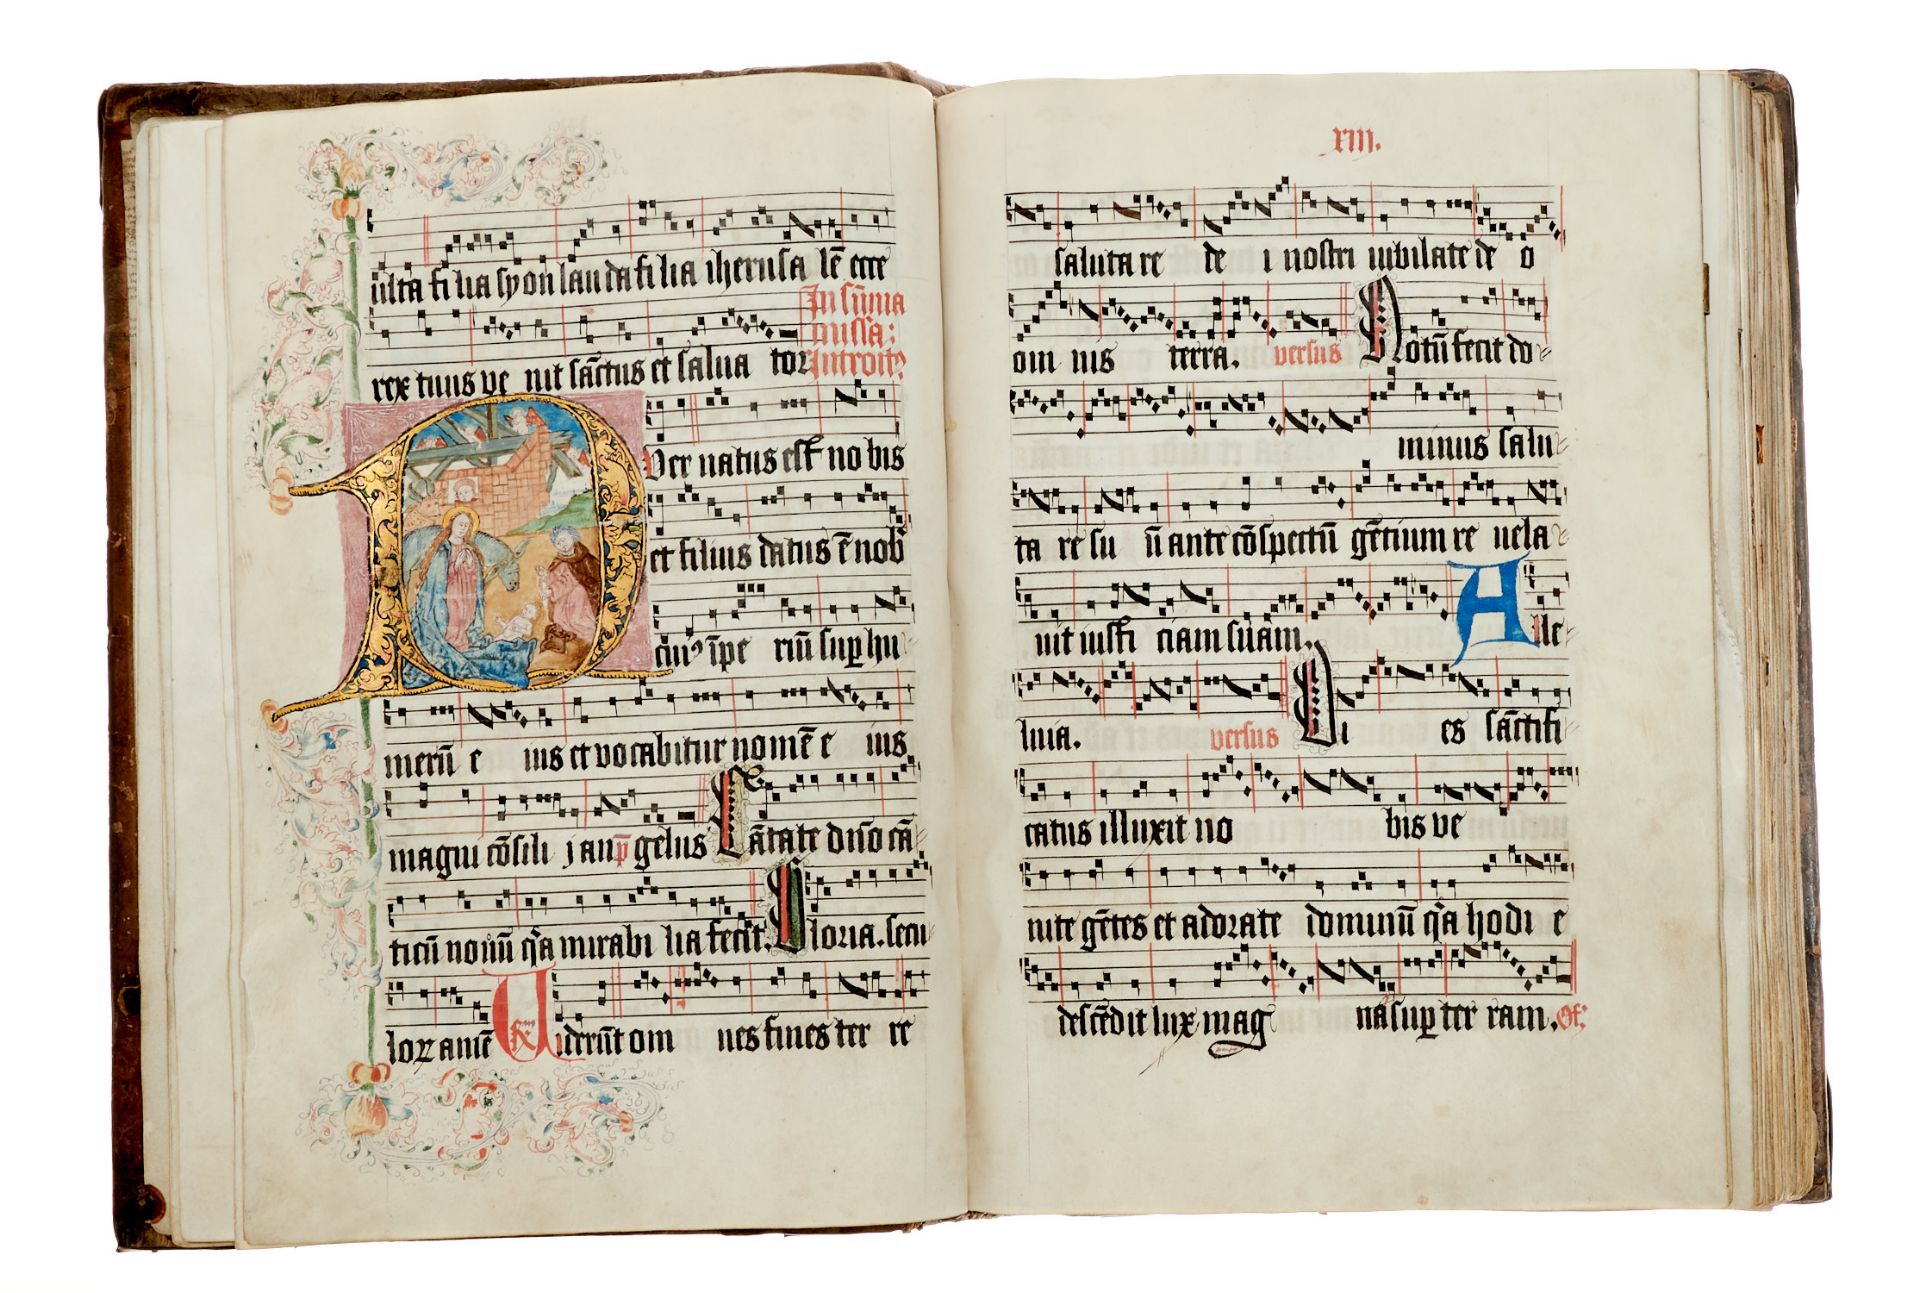 ulta filia syon lauda filia iherusalē ecce
In sūma
missa:
rex tuus venit sāctus et saluator Introit9
Per natus est nobis
et filius datus ē nob
cui9 īpe riū sup hu
merū eius et vocabitur nomē eius
magni cōsili j angelus Cātate dn̄o cā
ticū nouū q̄a mirabilia fecit. Gloria. secu
lorz amē Viderūt omnes fines terre
xiii.
salutare dei nostri iubilate deo
omnis terra. versus Notū fecit do
minus salu
tare suū ante cōspectū gētium reuela
uit iusticiam suam. Alle
luia. versus Dies sāctifi
catus illuxit nobis ve
nite gētes et adorate dominū q̄a hodie
descēdit lux magna sup terram. Of: